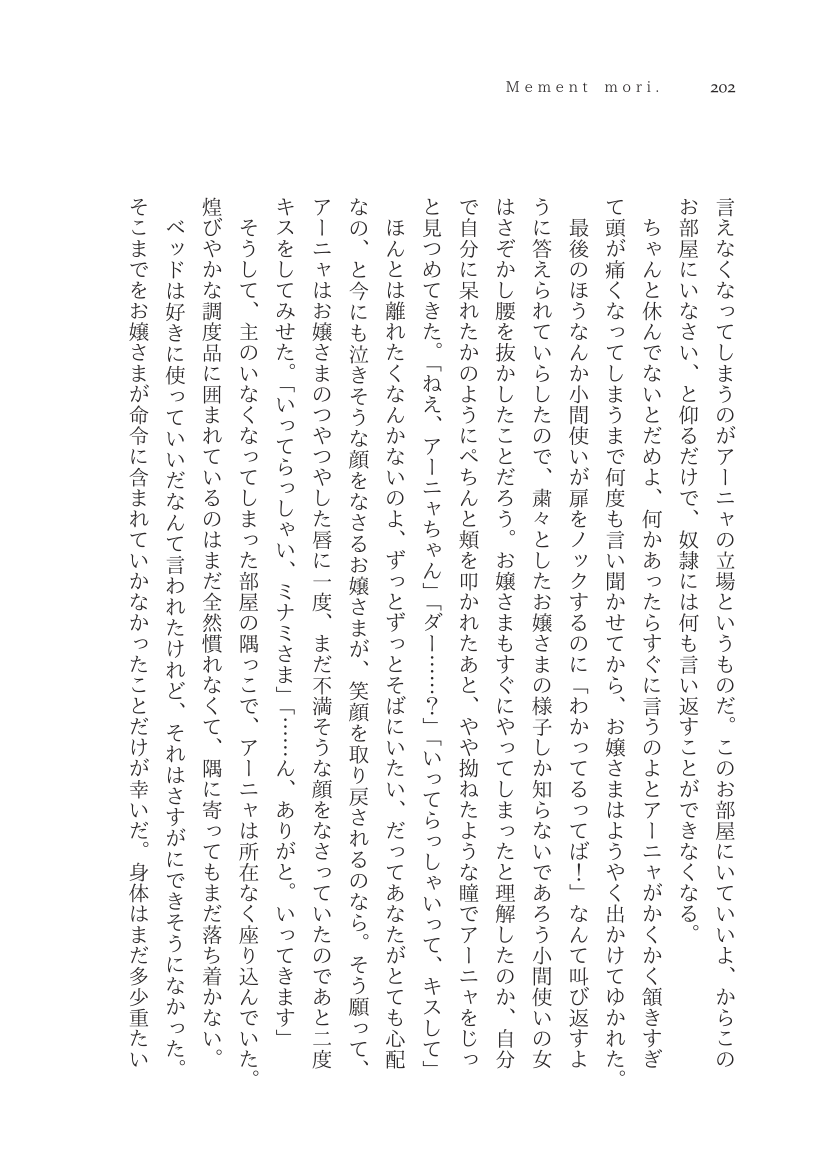 Mement mori.
202
言えなくなってしまうのがアーニャの立場というものだ。このお部屋にいていいよ、からこの
お部屋にいなさい、と仰るだけで、奴隷には何も言い返すことができなくなる。
ちゃんと休んでないとだめよ、何かあったらすぐに言うのよとアーニャがかくかく頷きすぎ
て頭が痛くなってしまうまで何度も言い聞かせてから、お嬢さまはようやく出かけてゆかれた。
最後のほうなんか小間使いが扉をノックするのに「わかってるってば！」なんて叫び返すよ
うに答えられていらしたので、粛々としたお嬢さまの様子しか知らないであろう小間使いの女
はさぞかし腰を抜かしたことだろう。お嬢さまもすぐにやってしまったと理解したのか、自分
で自分に呆れたかのようにぺちんと頬を叩かれたあと、やや拗ねたような瞳でアーニャをじっ
と見つめてきた。「ねえ、アーニャちゃん」「ダー……？」「いってらっしゃいって、キスして」
ほんとは離れたくなんかないのよ、ずっとずっとそばにいたい、だってあなたがとても心配
なの、と今にも泣きそうな顔をなさるお嬢さまが、笑顔を取り戻されるのなら。そう願って、
アーニャはお嬢さまのつやつやした唇に一度、まだ不満そうな顔をなさっていたのであと二度
キスをしてみせた。「いってらっしゃい、ミナミさま」「……ん、ありがと。いってきます」
そうして、主のいなくなってしまった部屋の隅っこで、アーニャは所在なく座り込んでいた。
煌びやかな調度品に囲まれているのはまだ全然慣れなくて、隅に寄ってもまだ落ち着かない。
ベッドは好きに使っていいだなんて言われたけれど、それはさすがにできそうになかった。
そこまでをお嬢さまが命令に含まれていかなかったことだけが幸いだ。身体はまだ多少重たい